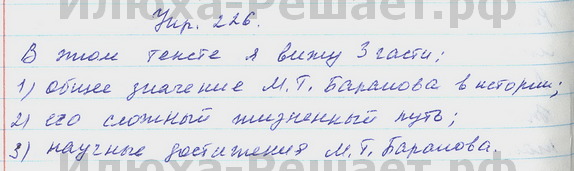 Илюха-Решает.рф
Упр. 226.
В этом тексте я вижу 3 части;
1) общее значение М.Т. Баранова в истории;
2) его сложный жизненный путь;
3) научные достижения М.Т. Баранова.
Илюха-Решает.рф